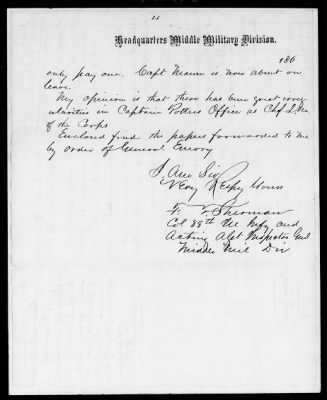 Headquarters Middle Military Division.
186
only pay one. Capt Mann is now about on
leave.
My opinion is that there has been great irreg
ularities in Captain Potters Office as Chf Q.M.
of the Corps
Enclosed find the papers forwarded to me
by order of General Emory
I Am Sir
Very Respy Yours
F. T. Sherman
Col 88th Ills Infy and
Acting Asst Inspector Genl
Middle Mil Div